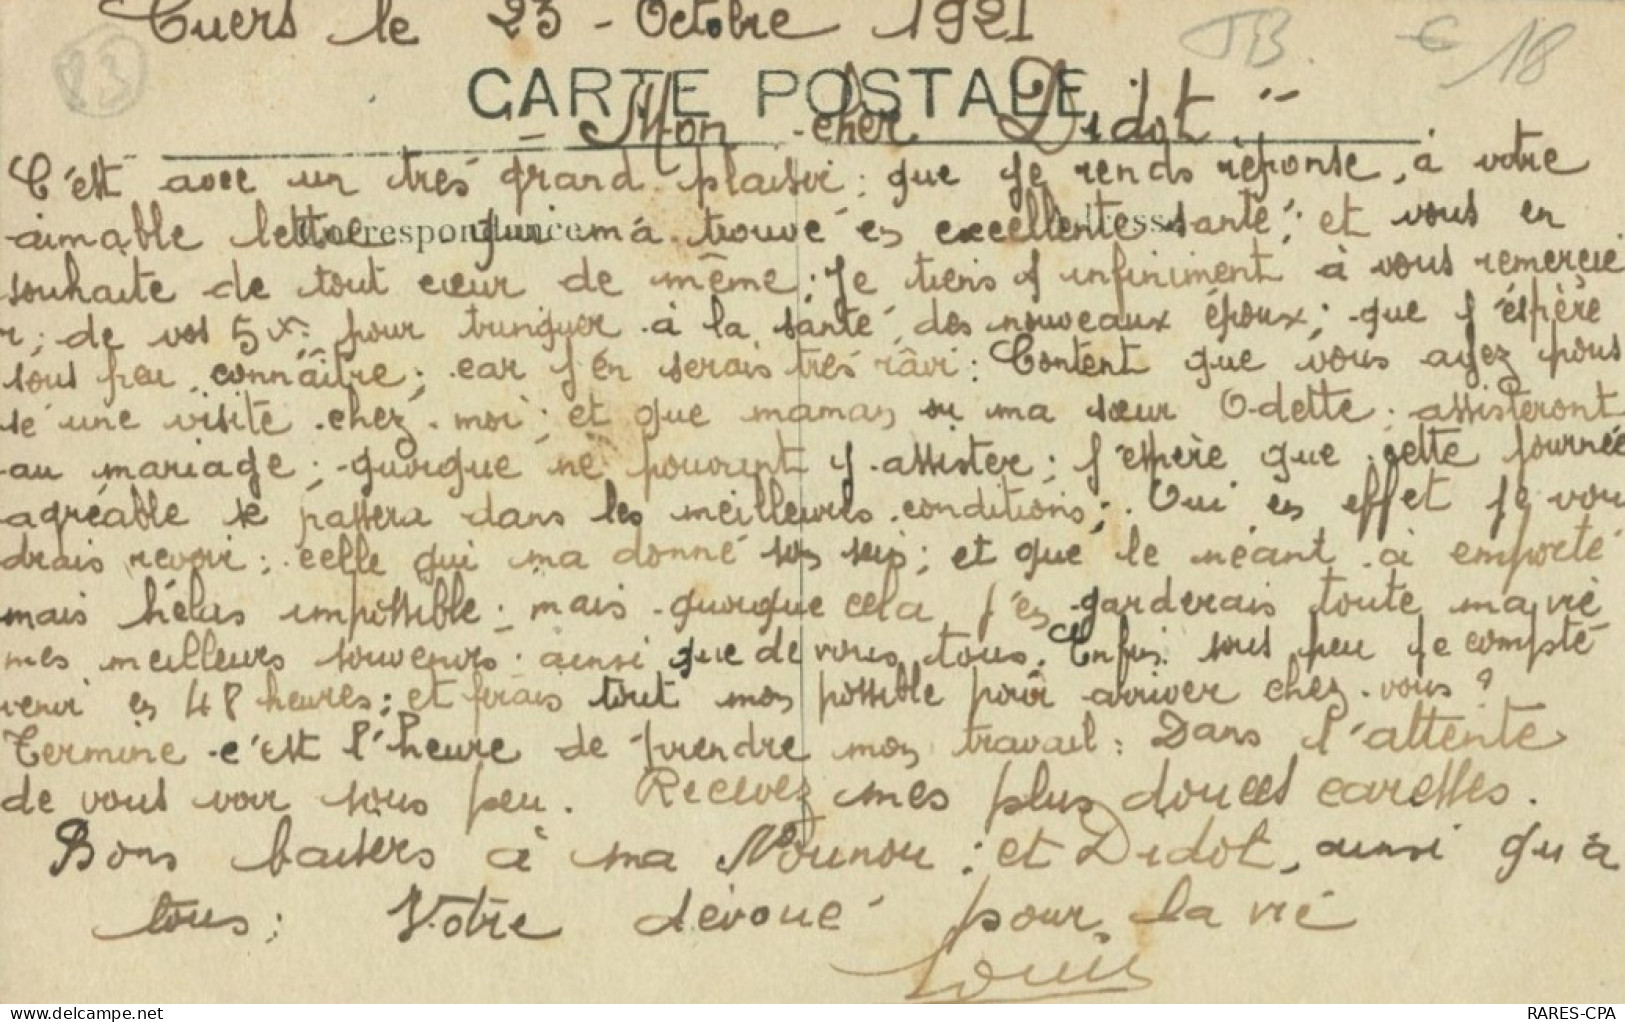 Cuers le 23 - Octobre 1921
JB € 18
83
CARTE POSTALE
- Mon cher Didot -
C'est avec un trés grand plaisir ; que je rends réponse, à votre
Correspondance
aimable lettre qui m'à trouvé en excellente santé ; et vous en
souhaite de tout cœur de même ; Je tiens infiniment à vous remercie
r ; de vos 5 x: pour trinquer à la santé des nouveaux époux ; que j'éspère
sous peu connâitre ; car j'en serais trés râvi : Content que vous ayez pous
sé une visite chez moi ; et que maman ou ma sœur Odette ; assisteront
au mariage ; quoique ne pouvant y assister ; j'espère que cette journée
agréable se passera dans les meilleures conditions ; Oui en effet je vou
drais revoir ; celle qui ma donné son sein ; et que le néant à emporté
mais hélas impossible ; mais quoique cela j'en garderais toute ma vie
mes meilleurs souvenirs ainsi que de vous tous. Enfin sous peu je compte
venir en 48 heures ; et ferais tout mon possible pour arriver chez vous ?
Termine c'est l'heure de prendre mon travail : Dans l'attente
de vous voir sous peu. Recevez mes plus douces caresses.
Bons baisers à ma Nounou ; et Didot, ainsi qu'à
tous ; Votre dévoué pour la vie
Louis
delcampe.net
RARES-CPA